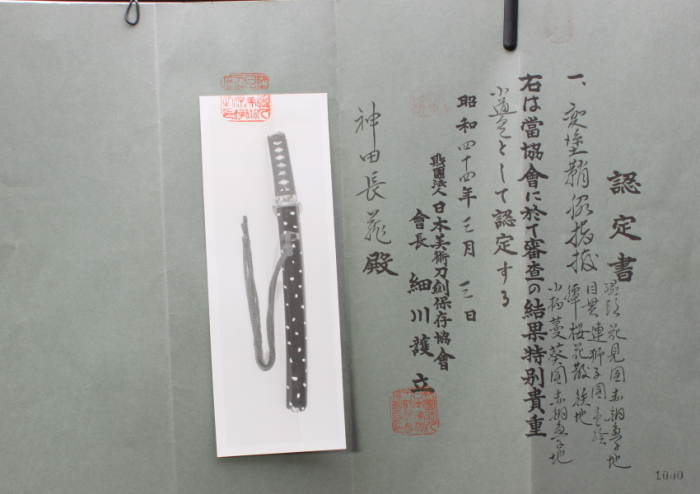 認定書
一、変塗鞘脇指拵
縁頭 花見図赤銅魚子地
目貫 連獅子図
鐔 桜花散 鉄地
小柄 蔓葵図赤銅魚子地
右は當協會に於て審査の結果特別貴重
小道具として認定する
昭和四十四年三月三日
財團法人日本美術刀剣保存協會
會長 細川護立
神田長 殿
1000